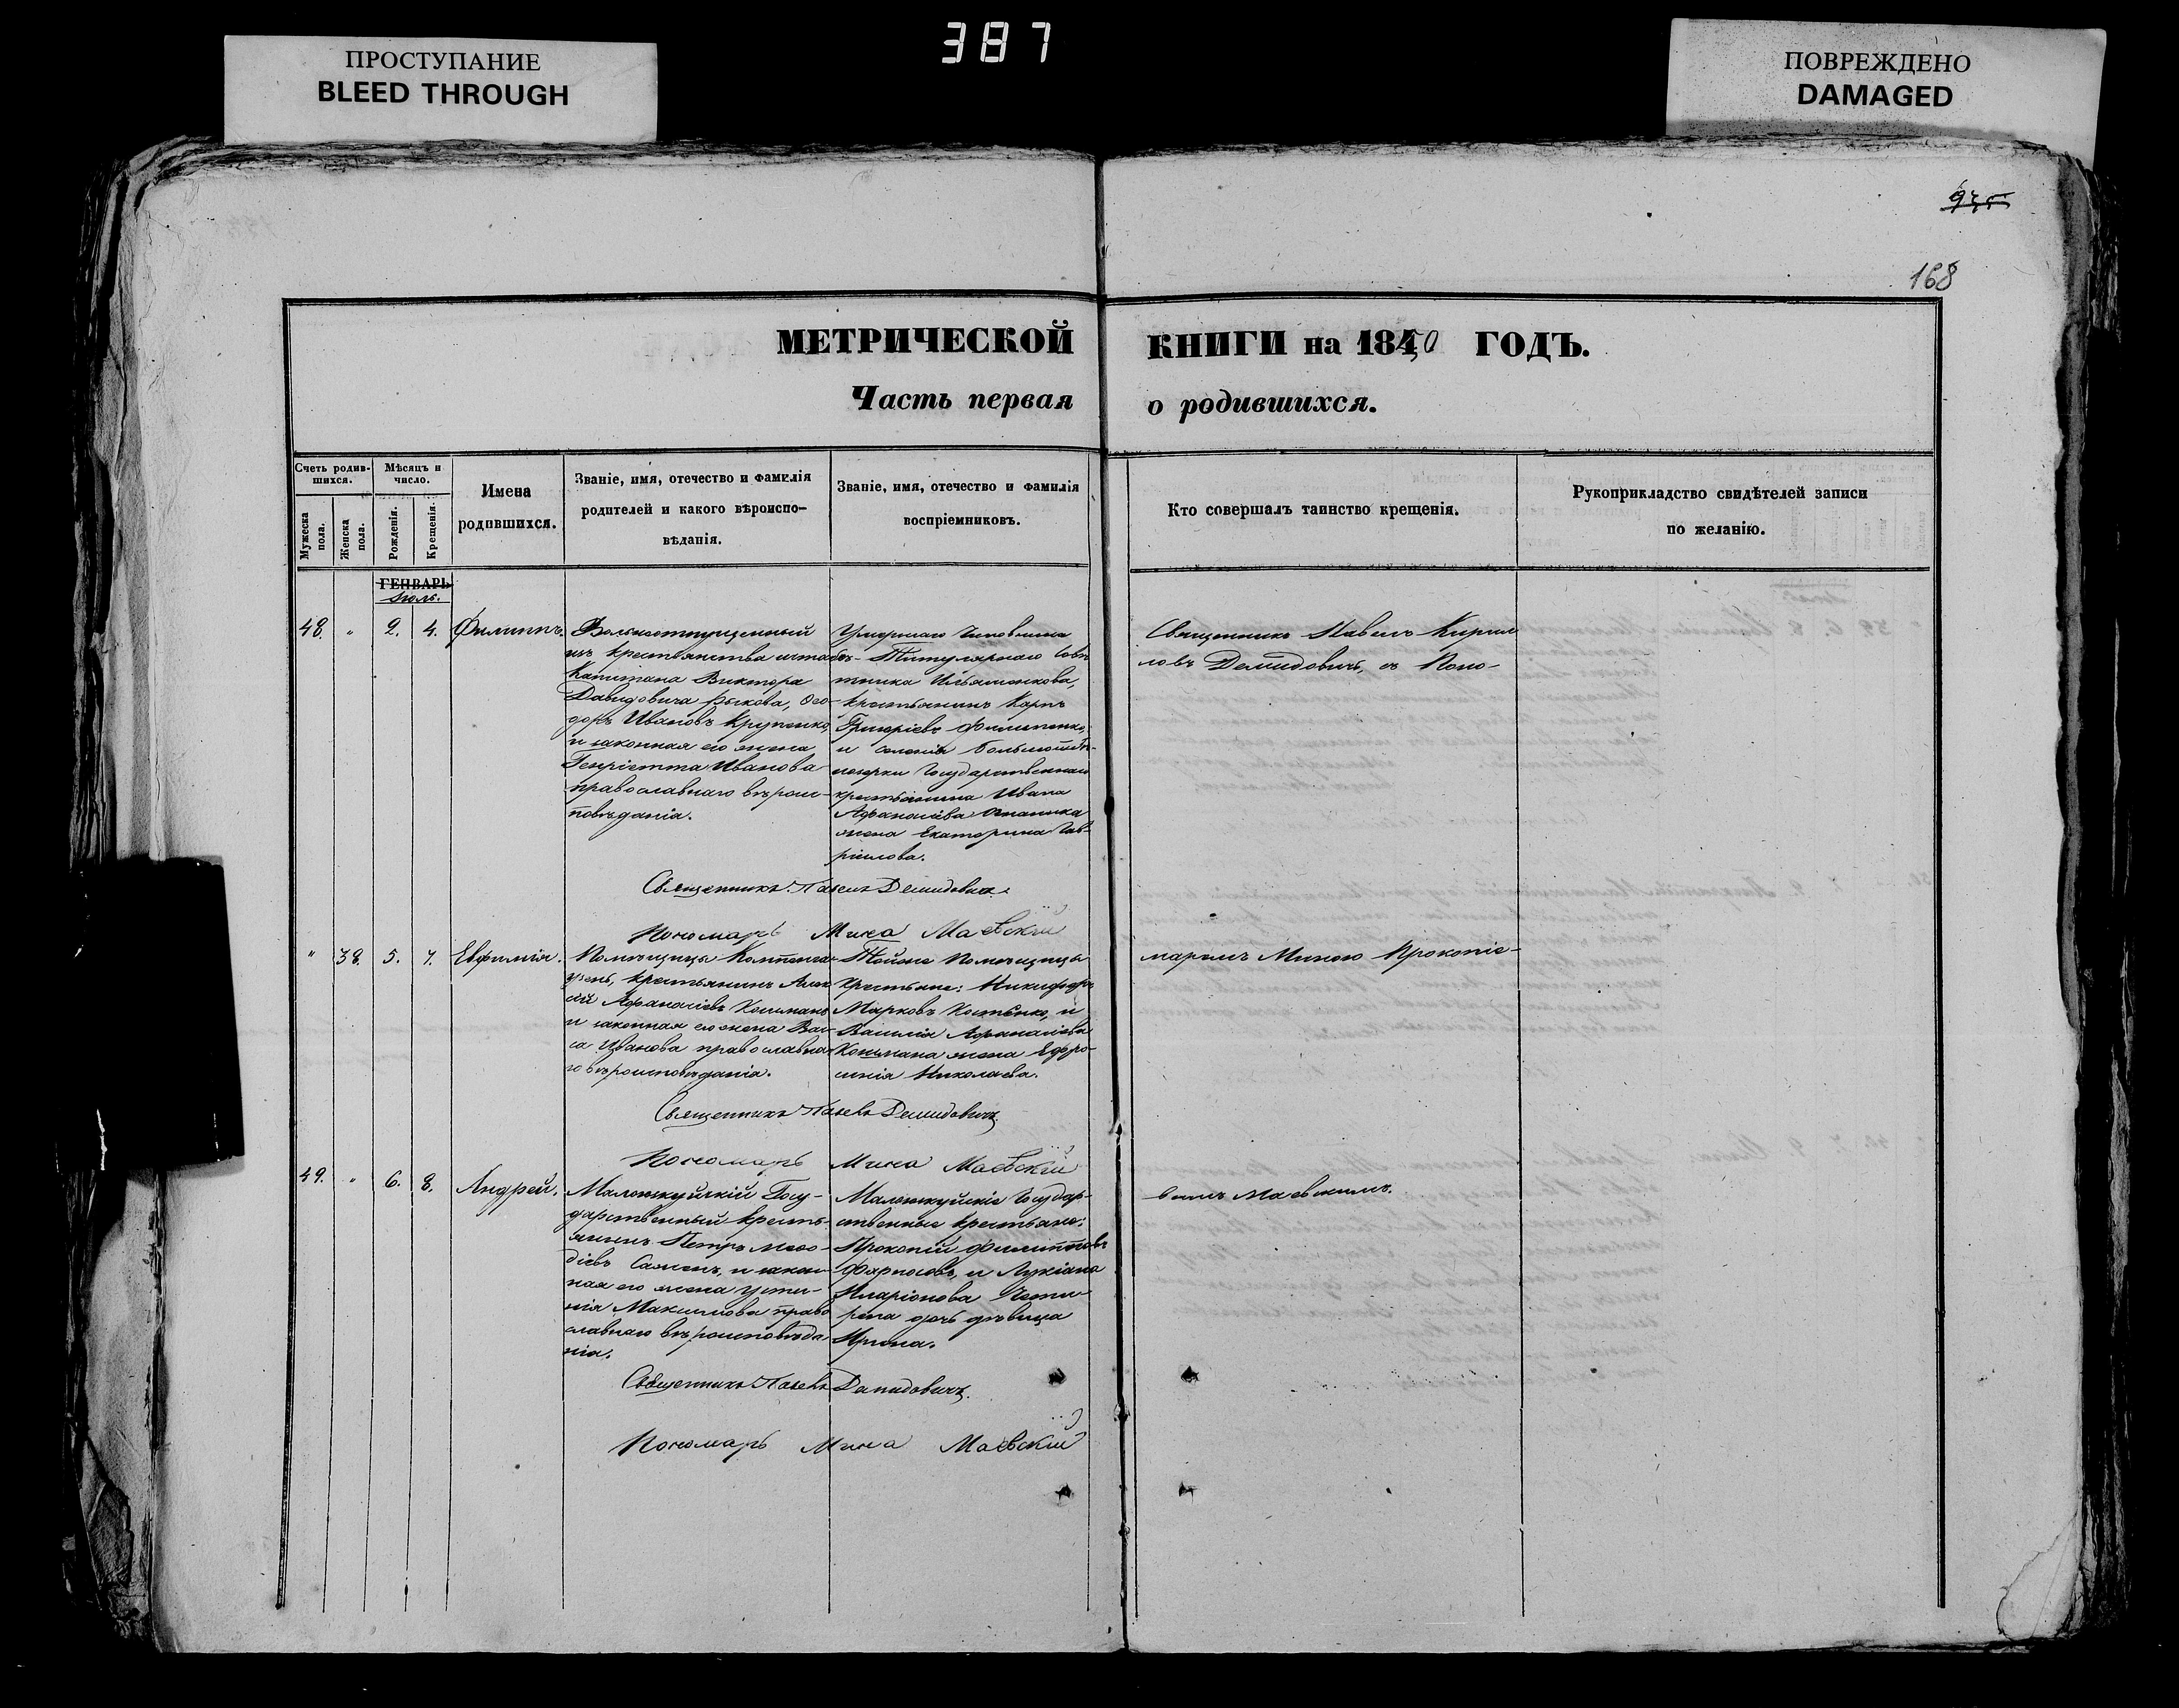 387
ПРОСТУПАНИЕ
BLEED THROUGH
ПОВРЕЖДЕНО
DAMAGED
935
168
МЕТРИЧЕСКОЙ КНИГИ на 1850 ГОДЪ.
Часть первая о родившихся.
Счетъ родив-
шихся.
Мужеска пола.
Женска пола.
Мѣсяцъ и
число.
Рожденія.
Крещенія.
Имена
родившихся.
Званіе, имя, отечество и фамилія
родителей и какого вѣроиспо-
вѣданія.
Званіе, имя, отечество и фамилія
воспріемниковъ.
Кто совершалъ таинство крещенія.
Рукоприкладство свидѣтелей записи
по желанію.
ГЕНВАРЬ
Іюль.
48. " 2. 4. Филиппъ.
Вольноотпущенный
изъ крестьянства штабсъ-
Капитана Виктора
Давидовича Рыкова, Ѳео-
доръ Ивановъ Крупенко,
и законная его жена
Генріетта Иванова
православнаго вѣроис-
повѣданія.
Умершаго Чиновника
Титулярнаго Совѣ
тника Ильяшенкова,
крестьянинъ Карпъ
Григоріевъ Филипенко,
и селенія
Государственнаго
крестьянина Ивана
Афанасіева
жена Екатерина Гав-
ріилова.
Священникъ Павелъ Кирил
ловъ Демидовичъ, съ Поно-
Священникъ Павелъ Демидовичъ.
Пономарь Мина Маевскій
" 38. 5. 7. Евфимія.
Помѣщицы
крестьянинъ Алек
сѣй Афанасіевъ Кошманъ
и законная его жена Вас-
са Иванова православна-
го вѣроисповѣданія.
Тойже Помѣщицы
Крестьяне: Никифоръ
Марковъ Костенко, и
Василія Афанасіева
Кошмана жена Ефро-
синія Николаева.
маремъ Миною Прокопіе-
Священникъ Павелъ Демидовичъ
Пономарь Мина Маевскій
49. " 6. 8. Андрей.
Госу-
дарственный кресть-
янинъ Петръ Меѳо-
діевъ и закон-
ная его жена Усти-
нія Максимова право
славнаго вѣроисповѣда-
нія.
Государ-
ственные крестьяне:
Прокопій Филипповъ
и Лукіана
Иларіонова
дочь дѣвица
Ирина.
вымъ Маевскимъ.
Священникъ Павелъ Демидовичъ.
Пономарь Мина Маевскій